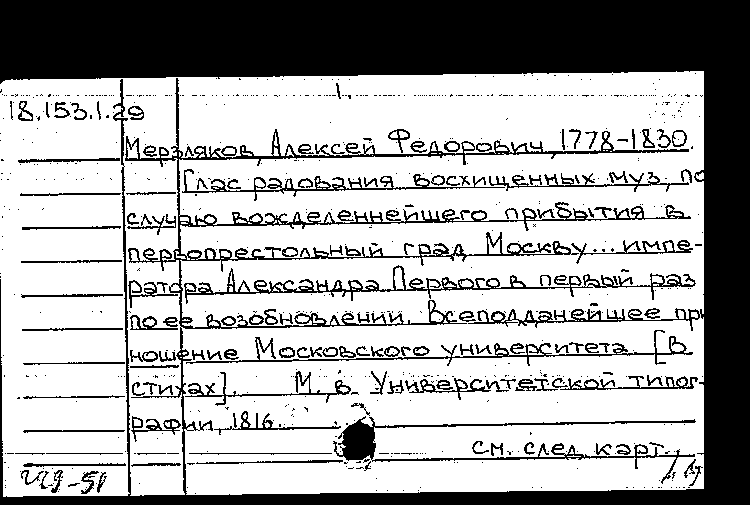 1.
18.153.1.29
Мерзляков, Алексей Федорович, 1778-1830.
Глас радования восхищенных муз, по
случаю вожделеннейшего прибытия в
первопрестольный град Москву... импе-
ратора Александра Первого в первый раз
по ее возобновлении. Всеподданейшее при
ношение Московского университета. [В
стихах]. М., в Университетской типог-
рафии, 1816.
см. след. карт.
229-51